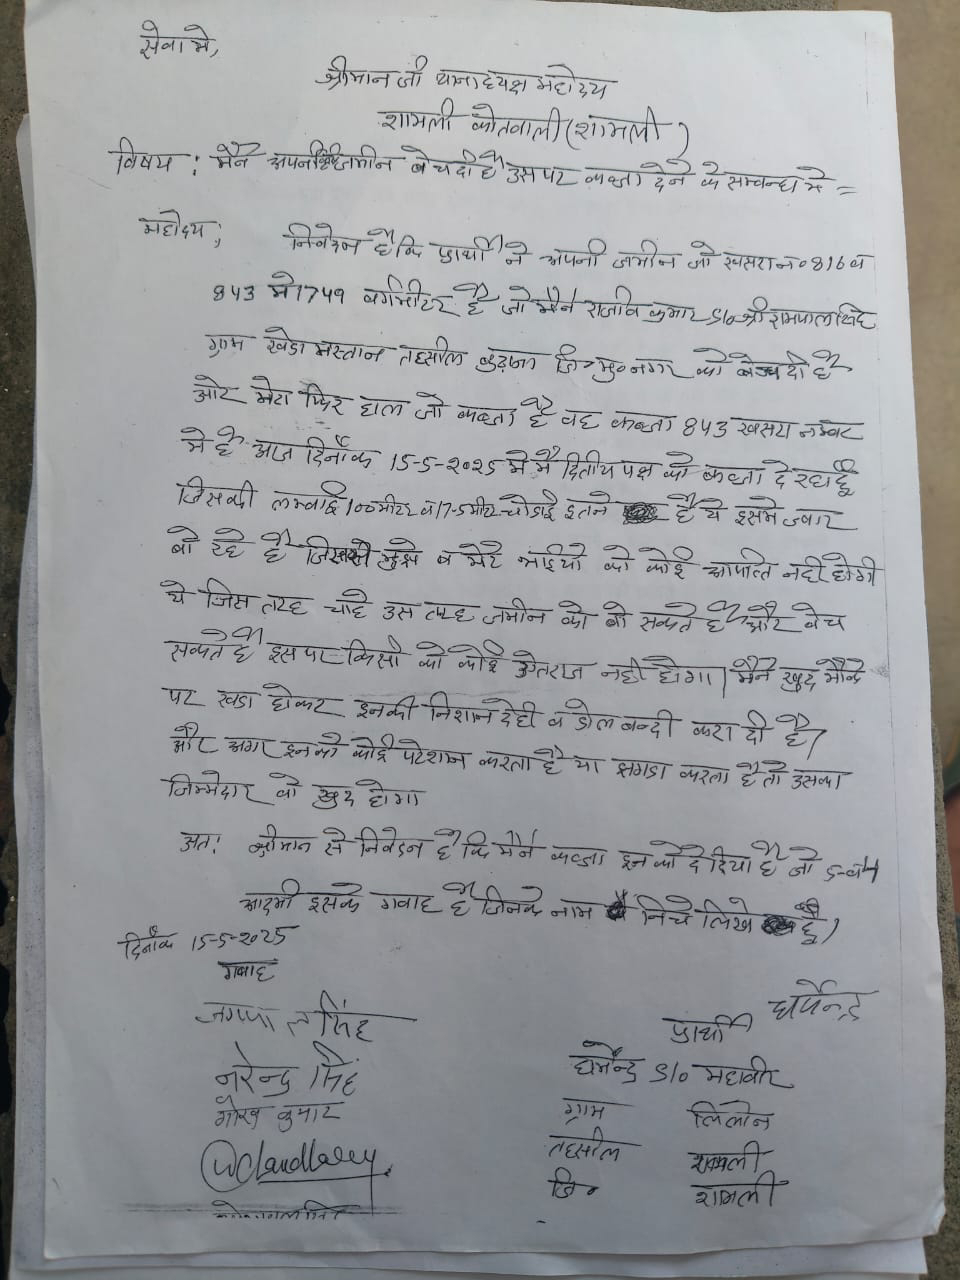 सेवा मे,
श्रीमान जी थानाध्यक्ष महोदय
शामली कोतवाली (शामली)
विषय : मैने अपनी जमीन बेच दी है उस पर कब्जा देने के सम्बन्ध मे =
महोदय; निवेदन है कि प्रार्थी ने अपनी जमीन जो खसरा न० 816 व
843 मे 1749 वर्गमीटर है जो मैने राजीव कुमार S/o श्री रामपाल सिंह
ग्राम खेडा मस्तान तहसील बुढाना जि० मु० नगर को बेच दी है
और मेरा फिर हाल जो कब्जा है वह कब्जा 843 खसरा नम्बर
मे है आज दिनाँक 15-5-2025 मे मै द्वितीय पक्ष को कब्जा दे रहा हूँ
जिसकी लम्बाई 100 मीटर व 17-5 मीटर चोडाई इतने है ये इसमे ज्वार
बो रहे है जिससे मुझे व मेरे भाईयो को कोई आपत्ति नही होगी
ये जिस तरह चाहे उस तरह जमीन को बो सकते है और बेच
सकते है इस पर किसी को कोई ऐतराज नही होगा। मैने खुद मौके
पर खडा होकर इनकी निशान देही व डोल बन्दी करा दी है।
और अगर इनको कोई परेशान करता है या झगडा करता है तो उसका
जिम्मेदार वो खुद होगा
अत: श्रीमान से निवेदन है कि मैने कब्जा इन को दे दिया है जो
आदमी इसके गवाह है जिनके नाम निचे लिखे है।
दिनाँक 15-5-2025
गवाह
जगपाल सिंह
धर्मेन्द्र
प्रार्थी
नरेन्द्र सिंह
धर्मेन्द्र S/o महावीर
कुमार
ग्राम लिलोन
तहसील शामली
जि० शामली